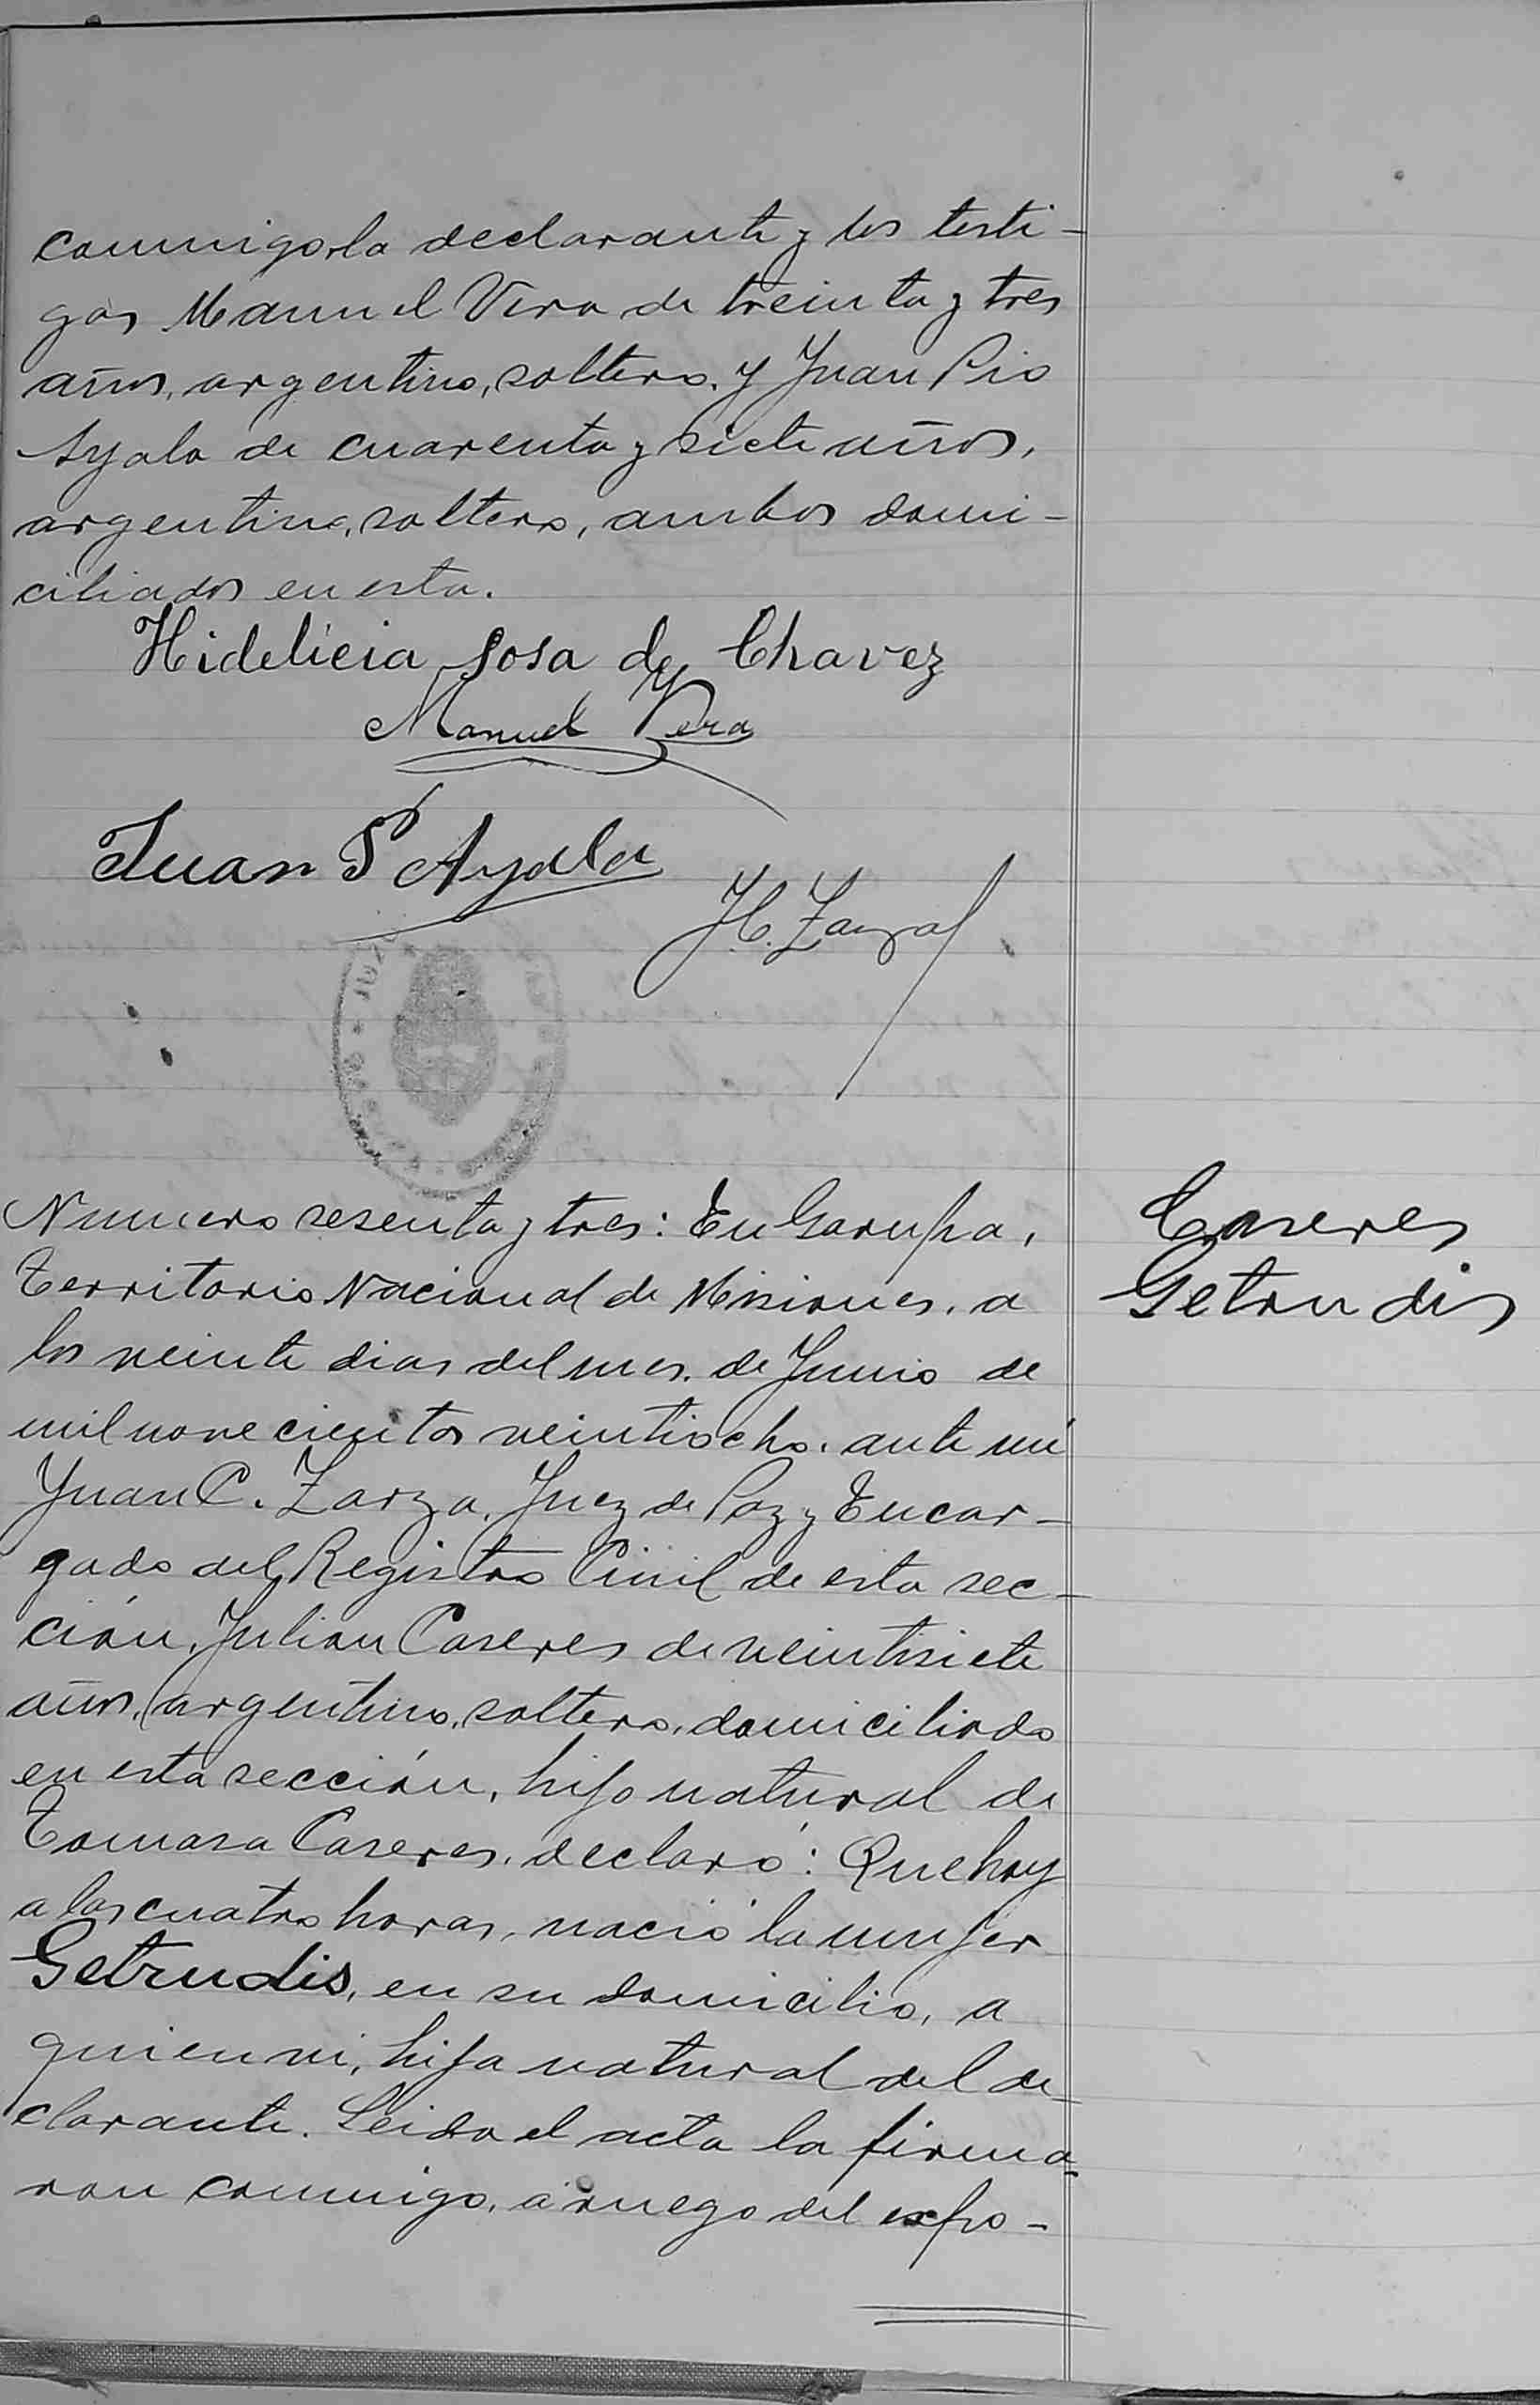 conmigo, la declarante y los testi-
gos Manuel Vera de treinta y tres
años, argentino, soltero. y Juan Pio
Ayala de cuarenta y siete años,
argentino, soltero, ambos domi-
ciliados en esta.
Hidelicia Sosa de Chavez
Manuel Vera
Juan P Ayala
Numero sesenta y tres: En Garupa,
Territorio Nacional de Misiones, a
los veinte dias del mes de Junio de
mil novecientos veintiocho, ante mi
Juan C. Zarza, Juez de Paz y Encar-
gado del Registro Civil de esta sec-
ción, Julian Caseres de veintisiete
años, argentino, soltero, domiciliado
en esta sección, hijo natural de
Tomasa Caseres, declaró: Que hoy
a las cuatro horas, nació la mujer
Getrudis, en su domicilio, a
quien vi, hija natural del de-
clarante. Leida el acta la firma-
ron conmigo, a ruego del expo-
Caseres
Getrudis